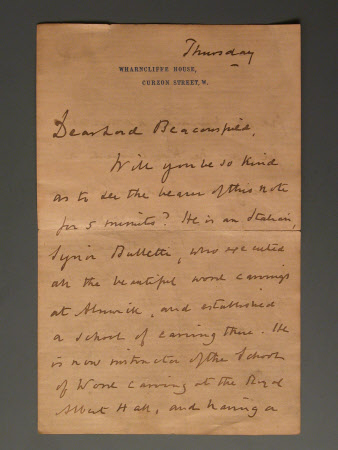 Thursday
WHARNCLIFFE HOUSE,
CURZON STREET, W.
Dear Lord Beaconsfield,
Will you be so kind
as to see the bearer of this note
for 5 minutes? He is an Italian,
Signor Bulletti, who executed
all the beautiful wood carvings
at Alnwick, and established
a school of carving there. He
is now instructor of the School
of Wood Carving at the Royal
Albert Hall, and having a